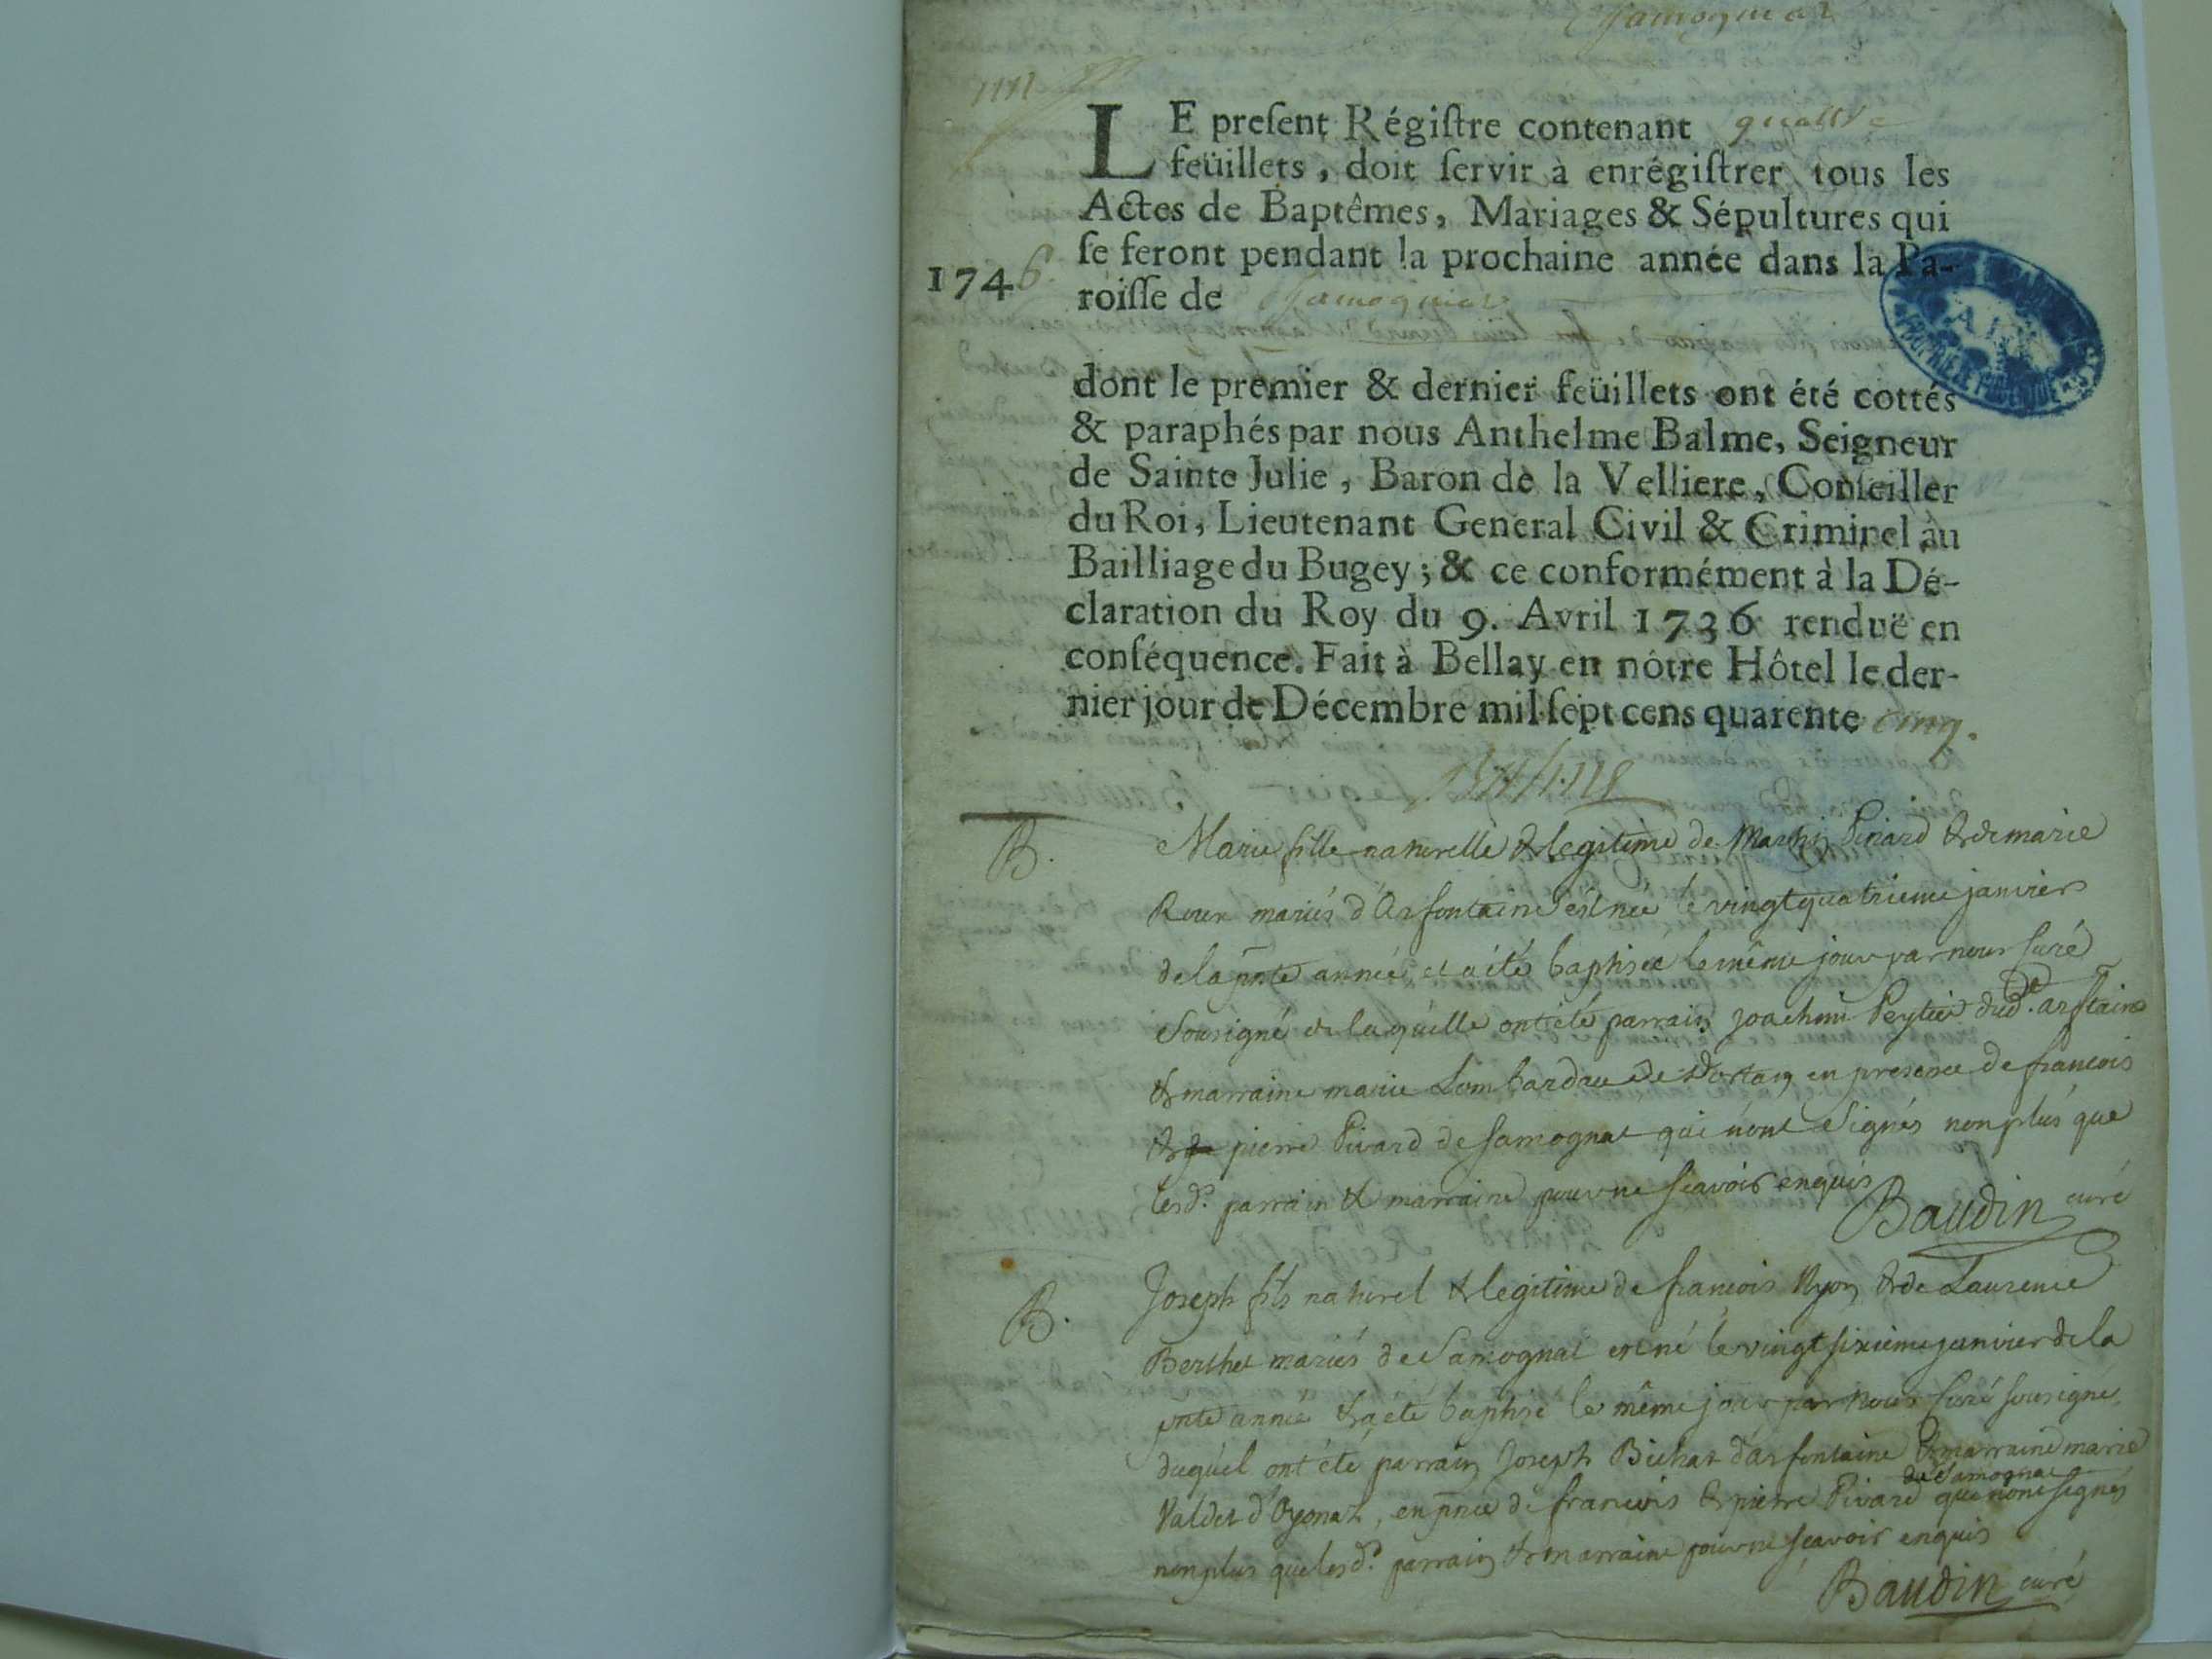 Samognat
LE preſent Régiſtre contenant quattre
feüillets, doit ſervir à enrégiſtrer tous les
Actes de Baptêmes, Mariages & Sépultures qui
ſe feront pendant la prochaine année dans la Pa-
1746
roiſſe de Samognat
dont le premier & dernier feüillets ont été cottés
& paraphés par nous Anthelme Balme, Seigneur
de Sainte Julie, Baron de la Velliere, Conſeiller
du Roi, Lieutenant General Civil & Criminel au
Bailliage du Bugey; & ce conformément à la Dé-
claration du Roy du 9. Avril 1736 renduë en
conſéquence. Fait à Bellay en nôtre Hôtel le der-
nier jour de Décembre mil ſept cens quarente cinq.
B.
Marie fille naturelle & legitime de Marin Pinard & de marie
Roux mariés d'Arfontaine est née le vingtquatrieme janvier
de la pnte année, et a été baptisée le même jour par nous Curé
Sousigné de laquelle ont été parrain joachim Peytier dud. arftaine
& marraine marie Lombardae de Dortan en presence de francois
& pierre Pivard de Samognat qui n'ont signés nonplus que
lesd. parrain & marraine pour ne sçavoir enquis
Baudin curé
B.
Joseph fils naturel & legitime de francois Ryon & de Laurence
Berthet mariés de Samognat est né le vingt sixieme janvier de la
pnte année & a été baptisé le même jour par nous Curé sousigné,
duquel ont été parrain Joseph Bichat d'arfontaine & marraine marie
de Samognat
Valdet d'Oyonat, en pnce de francois & pierre Pivard qui n'ont signés
nonplus que lesd. parrain & marraine pour ne sçavoir enquis
Baudin curé